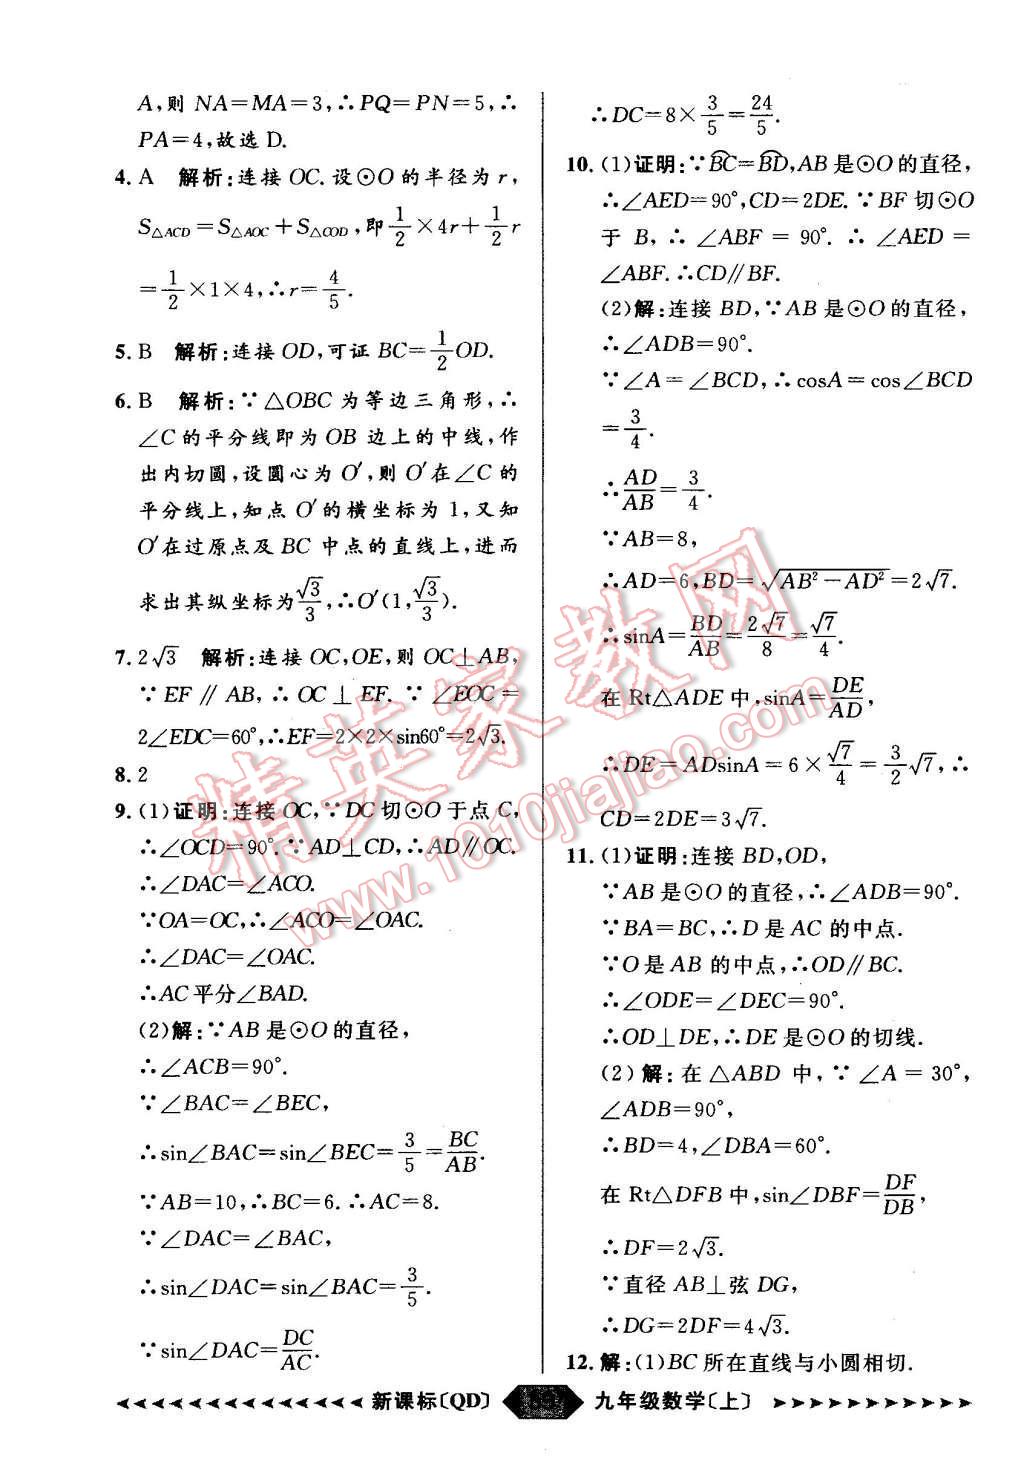 A,则 NA=MA=3,∴PQ=PN=5,∴
PA=4,故选 D.
4. A 解析:连接 OC.设⊙O 的半径为 r,
S△ACD=S△AOC+S△COD,即1/2×4r+1/2r
=1/2×1×4,∴r=4/5.
5. B 解析:连接 OD,可证 BC=1/2OD.
6. B 解析:∵△OBC 为等边三角形,∴
∠C 的平分线即为 OB 边上的中线,作
出内切圆,设圆心为 O′,则 O′在∠C 的
平分线上,知点 O′的横坐标为 1,又知
O′在过原点及 BC 中点的直线上,进而
求出其纵坐标为√3/3,∴O′(1,√3/3).
7. 2√3 解析:连接 OC,OE,则 OC⊥AB,
∵ EF∥AB,∴ OC⊥EF.∵ ∠EOC=
2∠EDC=60°,∴EF=2×2×sin60°=2√3.
8. 2
9. (1)证明:连接 OC,∵DC 切⊙O 于点 C,
∴∠OCD=90°.∵AD⊥CD,∴AD∥OC.
∴∠DAC=∠ACO.
∵OA=OC,∴∠ACO=∠OAC.
∴∠DAC=∠OAC.
∴AC 平分∠BAD.
(2)解:∵AB 是⊙O 的直径,
∴∠ACB=90°.
∵∠BAC=∠BEC,
∴sin∠BAC=sin∠BEC=3/5=BC/AB.
∵AB=10,∴BC=6.∴AC=8.
∵∠DAC=∠BAC,
∴sin∠DAC=sin∠BAC=3/5.
∵sin∠DAC=DC/AC.
∴DC=8×3/5=24/5.
10. (1)证明:∵B͡C=B͡D,AB 是⊙O 的直径,
∴∠AED=90°,CD=2DE.∵BF 切⊙O
于 B,∴ ∠ABF = 90°.∴ ∠AED =
∠ABF.∴CD∥BF.
(2)解:连接 BD,∵AB 是⊙O 的直径,
∴∠ADB=90°.
∵∠A=∠BCD,∴cosA=cos∠BCD
=3/4.
∴AD/AB=3/4.
∵AB=8,
∴AD=6,BD=√(AB²−AD²)=2√7.
∴sinA=BD/AB=2√7/8=√7/4.
在 Rt△ADE 中,sinA=DE/AD,
∴DE=ADsinA=6×√7/4=3/2√7,∴
CD=2DE=3√7.
11. (1)证明:连接 BD,OD,
∵AB 是⊙O 的直径,∴∠ADB=90°.
∵BA=BC,∴D 是 AC 的中点.
∵O 是 AB 的中点,∴OD∥BC.
∴∠ODE=∠DEC=90°.
∴OD⊥DE,∴DE 是⊙O 的切线.
(2)解:在△ABD 中,∵∠A=30°,
∠ADB=90°,
∴BD=4,∠DBA=60°.
在 Rt△DFB 中,sin∠DBF=DF/DB,
∴DF=2√3.
∵直径 AB⊥弦 DG,
∴DG=2DF=4√3.
12. 解:(1)BC 所在直线与小圆相切.
新课标〔QD〕 九年级数学〔上〕
精英家教网
www.1010jiajiao.com